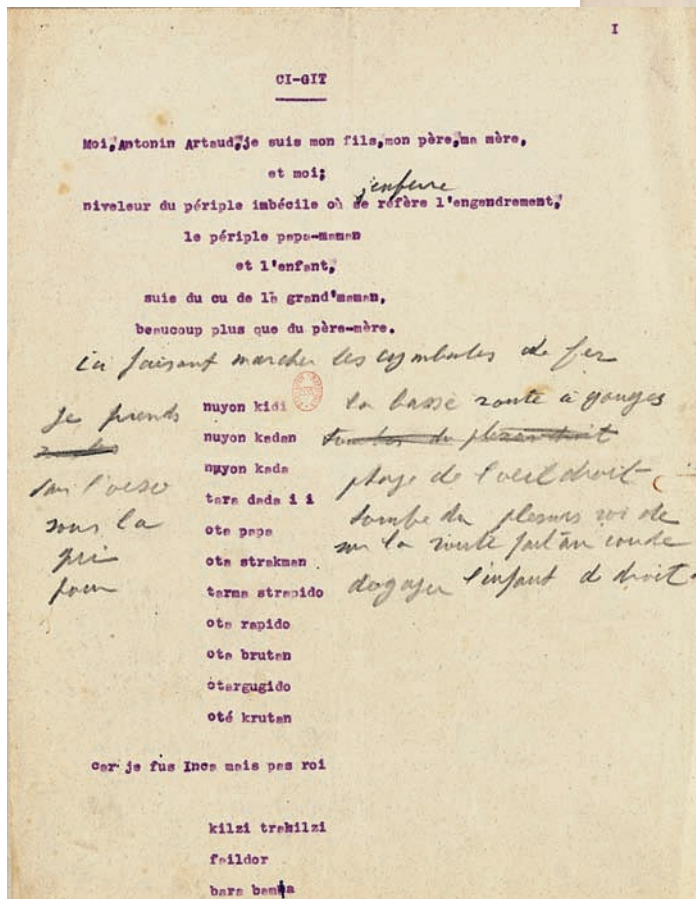 I
CI-GIT
Moi, Antonin Artaud, je suis mon fils, mon père, ma mère,
et moi;
j'enferre
niveleur du périple imbécile où se réfère l'engendrement,
le périple papa-maman
et l'enfant,
suie du cu de la grand'maman,
beaucoup plus que du père-mère.
faisant marcher les cymbales de fer
je prends
sur l'
sous la
pour
nuyon kidi
nuyon kadan
nuyon kada
tara dada i i
ota papa
ota strakman
tarma strapido
ota rapido
ota brutan
otargugido
oté krutan
la basse route à gouges
de l'oeil droit
la route fait un coude
l'enfant droit
car je fus Inca mais pas roi
kilzi trakilzi
faildor
bara bama